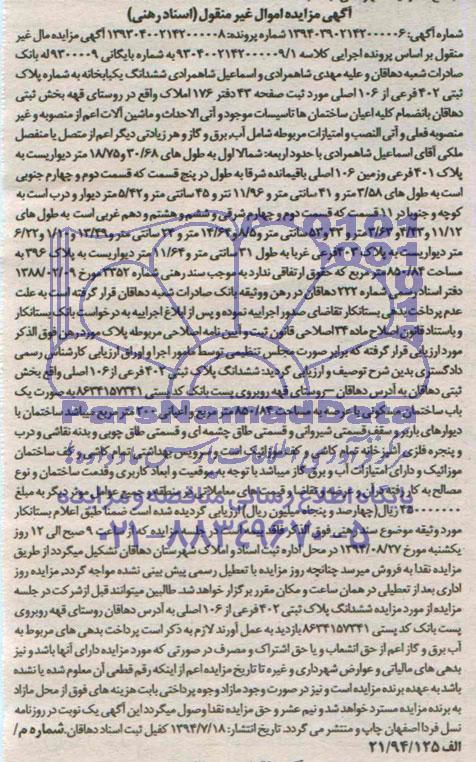 آگهی مزایده اموال غیر منقول (اسناد رهنی)
شماره آگهی: ۱۳۹۴۰۳۹۰۲۱۴۲۰۰۰۰۰۶ شماره پرونده: ۱۳۹۳۰۴۰۰۲۱۴۲۰۰۰۰۰۸ آگهی مزایده مال غیر
منقول بر اساس پرونده اجرایی کلاسه ۹۳۰۴۰۰۲۱۴۲۰۰۰۰۹/۱ به شماره بایگانی ۹۳۰۰۰۰۹ له بانک
صادرات شعبه دهاقان و علیه مهدی شاهمرادی و اسماعیل شاهمرادی ششدانگ یکبابخانه به شماره پلاک
ثبتی ۴۰۲ فرعی از ۱۰۶ اصلی مورد ثبت صفحه ۴۳ دفتر ۱۷۶ املاک واقع در روستای قهه بخش ثبتی
دهاقان بانضمام کلیه اعیان ساختمان ها تاسیسات موجود و آتی الاحداث و ماشین آلات اعم از منصوبه و غیر
منصوبه فعلی و آتی النصب و امتیازات مربوطه شامل آب، برق و گاز و هر زیادتی دیگر اعم از متصل یا منفصل
ملکی آقای اسماعیل شاهمرادی با حدود اربعه: شمالا اول به طول های ۳۰/۶۸ و ۱۸/۷۵ متر دیواریست به
پلاک ۴۰۱ فرعی وزمین ۱۰۶ اصلی باقیمانده شرقا به طول در پنج قسمت که قسمت دوم و چهارم جنوبی
است به طول های ۳/۵۸ متر و ۴۱ سانتی متر و ۱۱/۹۶ تتر و ۴۵ سانتی متر و ۵/۴۲ متر دیوار و درب است به
کوچه و جنوبا در ۱۱ قسمت که قسمت دوم و چهارم شرقی و ششم و هشتم و دهم غربی است به طول های
۱۱/۱۲ و ۴/۴۳ و ۳/۶۲ متر و ۴۳ و ۵۳ سانتی متر و ۸/۵ و ۱۴/۶۴ متر و ۲۴ سانتی متر و ۱۳/۴۹ و ۱/۱۰ و ۶/۲۲
متر دیواریست به پلاک ۴۰۳ فرعی غربا به طول ۳۱ سانتی متر و ۱۱/۶۳ متر دیواریست به پلاک ۳۹۶ به
مساحت ۸۵۰/۸۴ متر مربع که حقوق ارتفاقی ندارد به موجب سند رهنی شماره ۱۲۵۲ مورخ ۱۳۸۸/۰۲/۰۹
دفتر اسناد رسمی شماره ۲۲۲ دهاقان در رهن ووثیقه بانک صادرات شعبه دهاقان قرار گرفته است به علت
عدم پرداخت بدهی بستانکار تقاضای صدور اجراییه نموده و پس از ابلاغ اجراییه به درخواست بانک بستانکار
و باستناد قانون اصلاح ماده ۳۴ اصلاحی قانون ثبت و آیین نامه اصلاحی مربوطه پلاک مورد رهن فوق الذکر
مورد ارزیابی قرار گرفته که برابر صورت مجلس تنظیمی توسط مامور اجرا و اوراق ارزیابی کارشناس رسمی
دادگستری بدین شرح توصیف و ارزیابی گردید: ششدانگ پلاک ثبتی ۴۰۲ فرعی از ۱۰۶ اصلی واقع بخش
ثبتی دهاقان به آدرس دهاقان – روستای قهه روبروی پست بانک کد پستی ۸۶۳۴۱۵۷۳۴۱ به صورت یک
باب ساختمان مسکونی با عرصه به مساحت ۸۵۰/۸۴ متر مربع و اعیانی ۲۰۰ متر مربع میباشد ساختمان با
دیوارهای باربر و سقف قسمتی شیروانی و قسمتی طاق چشمه ای و قسمتی طاق چوبی و بدنه نقاشی و درب
و پنجره فلزی آشپزخانه تمام کاشی و کف موزائیک است و سرویس بهداشتی تمام کاشی و کف ساختمان
موزائیک و دارای امتیازات آب و برق گاز میباشد با توجه به موقعیت و ابعاد کاربری وقدمت ساختمان و نوع
مصالح به کار رفته در آن و عرضه و تقاضا و قیمت های معاملاتی در منطقه و جمیع عوامل موثر دیگر به مبلغ
۴۵۰۰۰۰۰۰۰ ریال (چهارصد و پنجاه میلیون ریال) ارزیابی گردیده شده است ضمنا طبق اعلام بستانکار
مورد وثیقه موضوع سند رهنی فوق الذکر فاقد بیمه است در جلسه مزایده که از ساعت ۹ صبح الی ۱۲ روز
یکشنبه مورخ ۱۳۹۴/۰۸/۲۷ در محل اداره ثبت اسناد و املاک شهرستان دهاقان تشکیل میگردد از طریق
مزایده نقدا به فروش میرسد چنانچه روز مزایده با تعطیل رسمی پیش بینی نشده مواجه گردد، مزایده روز
اداری بعد از تعطیلی در همان ساعت و مکان مقرر برگزار خواهد شد. طالبین میتوانند قبل از شرکت در جلسه
مزایده از مورد مزایده ششدانگ پلاک ثبتی ۴۰۲ فرعی از ۱۰۶ اصلی به آدرس دهاقان روستای قهه روبروی
پست بانک کد پستی ۸۶۳۴۱۵۷۳۴۱ بازدید به عمل آورند لازم به ذکر است پرداخت بدهی های مربوط به
آب برق و گاز اعم از حق انشعاب و یا حق اشتراک و مصرف در صورتی که مورد مزایده دارای آنها باشد و نیز
بدهی های مالیاتی و عوارض شهرداری و غیره تا تاریخ مزایده اعم از اینکه رقم قطعی آن معلوم شده یا نشده
باشد به عهده برنده مزایده است و نیز در صورت وجود مازاد وجوه پرداختی بابت هزینه های فوق از محل مازاد
به برنده مزایده مسترد خواهد شد و نیم عشر و حق مزایده نقدا وصول میگردد این آگهی یک نوبت در روزنامه
نسل فردا اصفهان چاپ و منتشر می گردد. تاریخ انتشار: ۱۳۹۴/۷/۱۸ کفیل ثبت اسناد دهاقان. شماره م/
الف ۲۱/۹۴/۱۲۵
ParsNamadData
پایگاه اطلاع رسانی مناقصه و مزایده
۰۲۱-۸۸۳۴۹۶۷۰-۵